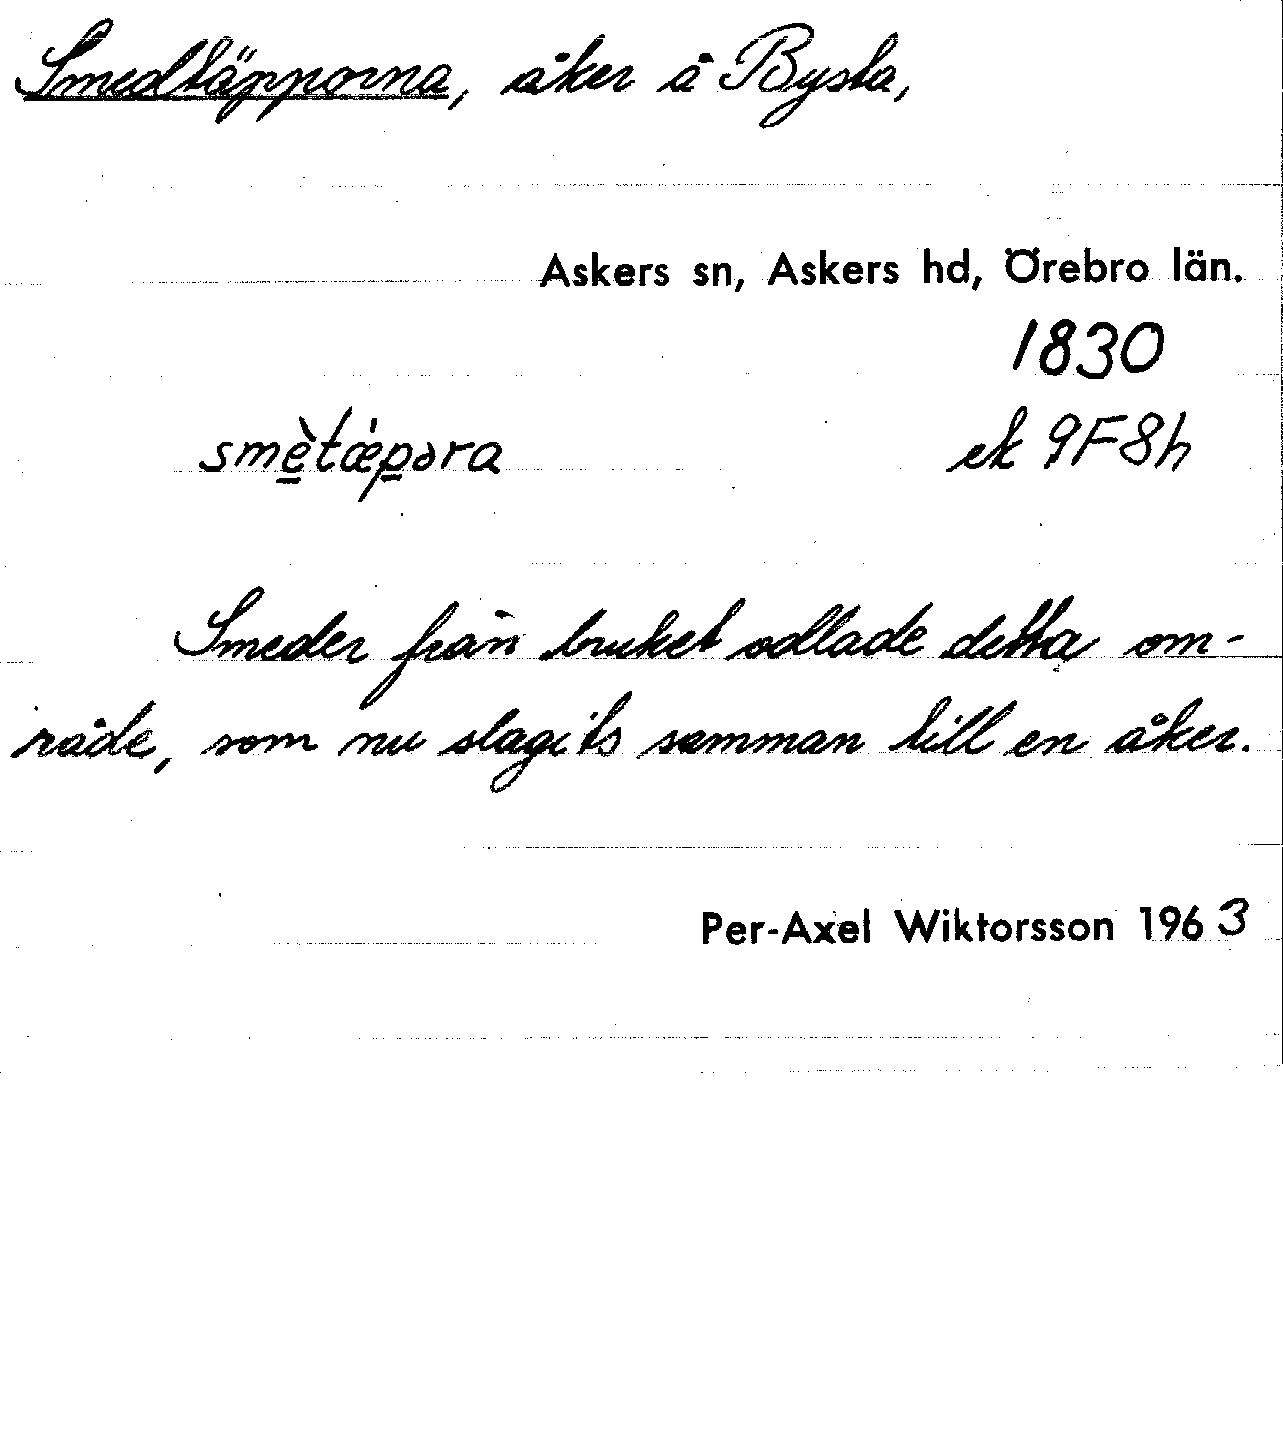 Smedtäpporna, åker å Bysta,
Askers sn, Askers hd, Örebro län.
1830
smètǽpəra ek 9F8h
Smeder från bruket odlade detta om-
råde, som nu slagits samman till en åker.
Per-Axel Wiktorsson 1963